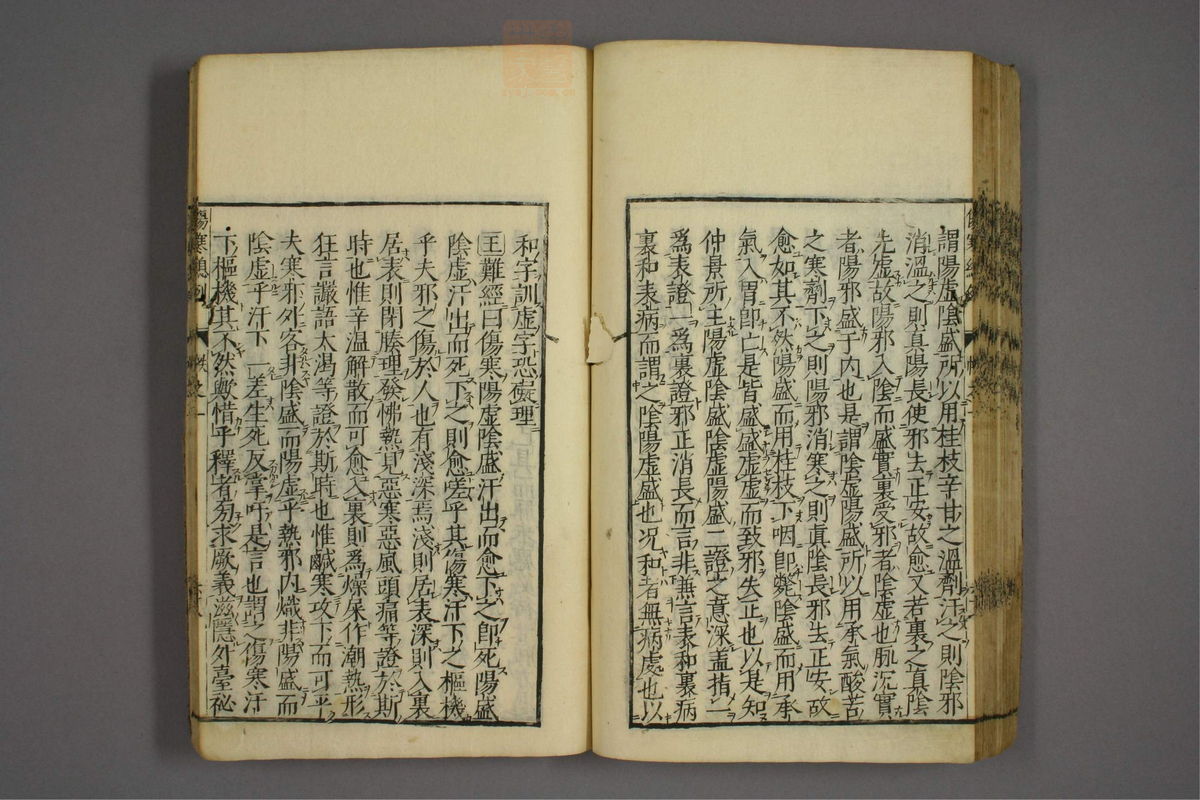 謂陽虛陰盛所以用桂枝辛甘之溫劑汗之則陰邪
消溫之則真陽長使邪去正安故愈又若裏之真陰
先虛故陽邪入陰而盛實裏受邪者陰虛也脈沉實
者陽邪盛于內也是謂陰虛陽盛所以用承氣酸苦
之寒劑下之則陽邪消寒之則真陰長邪去正安故
愈如其不然陽盛而用桂枝下咽即斃陰盛而用承
氣入胃即亡是皆盛盛虛虛而致邪失正也以是知
仲景所主陽虛陰盛陰虛陽盛二證之意深盖指一
為表證一為裏證邪正消長而言非兼言表和裏病
裏和表病而謂之陰陽虛盛也况和者無病處也以
和字訓虛字恐礙理
王難經曰傷寒陽虛陰盛汗出而愈下之即死陽盛
陰虛汗出而死下之則愈嗟乎其傷寒汗下之樞機
乎夫邪之傷於人也有淺深焉淺則居表深則入裏
居表則閉腠理發怫熱見惡寒惡風頭痛等證於斯
時也惟辛溫解散而可愈入裏則為燥屎作潮熱形
狂言讝語大渴等證於斯時也惟鹹寒攻下而可平
夫寒邪外客非陰盛而陽虛乎熱邪內熾非陽盛而
陰虛乎汗下一差生死反掌吁是言也謂之傷寒汗
下樞機其不然歟惜乎釋者旁求厥義滋隱外臺祕
傷寒總例